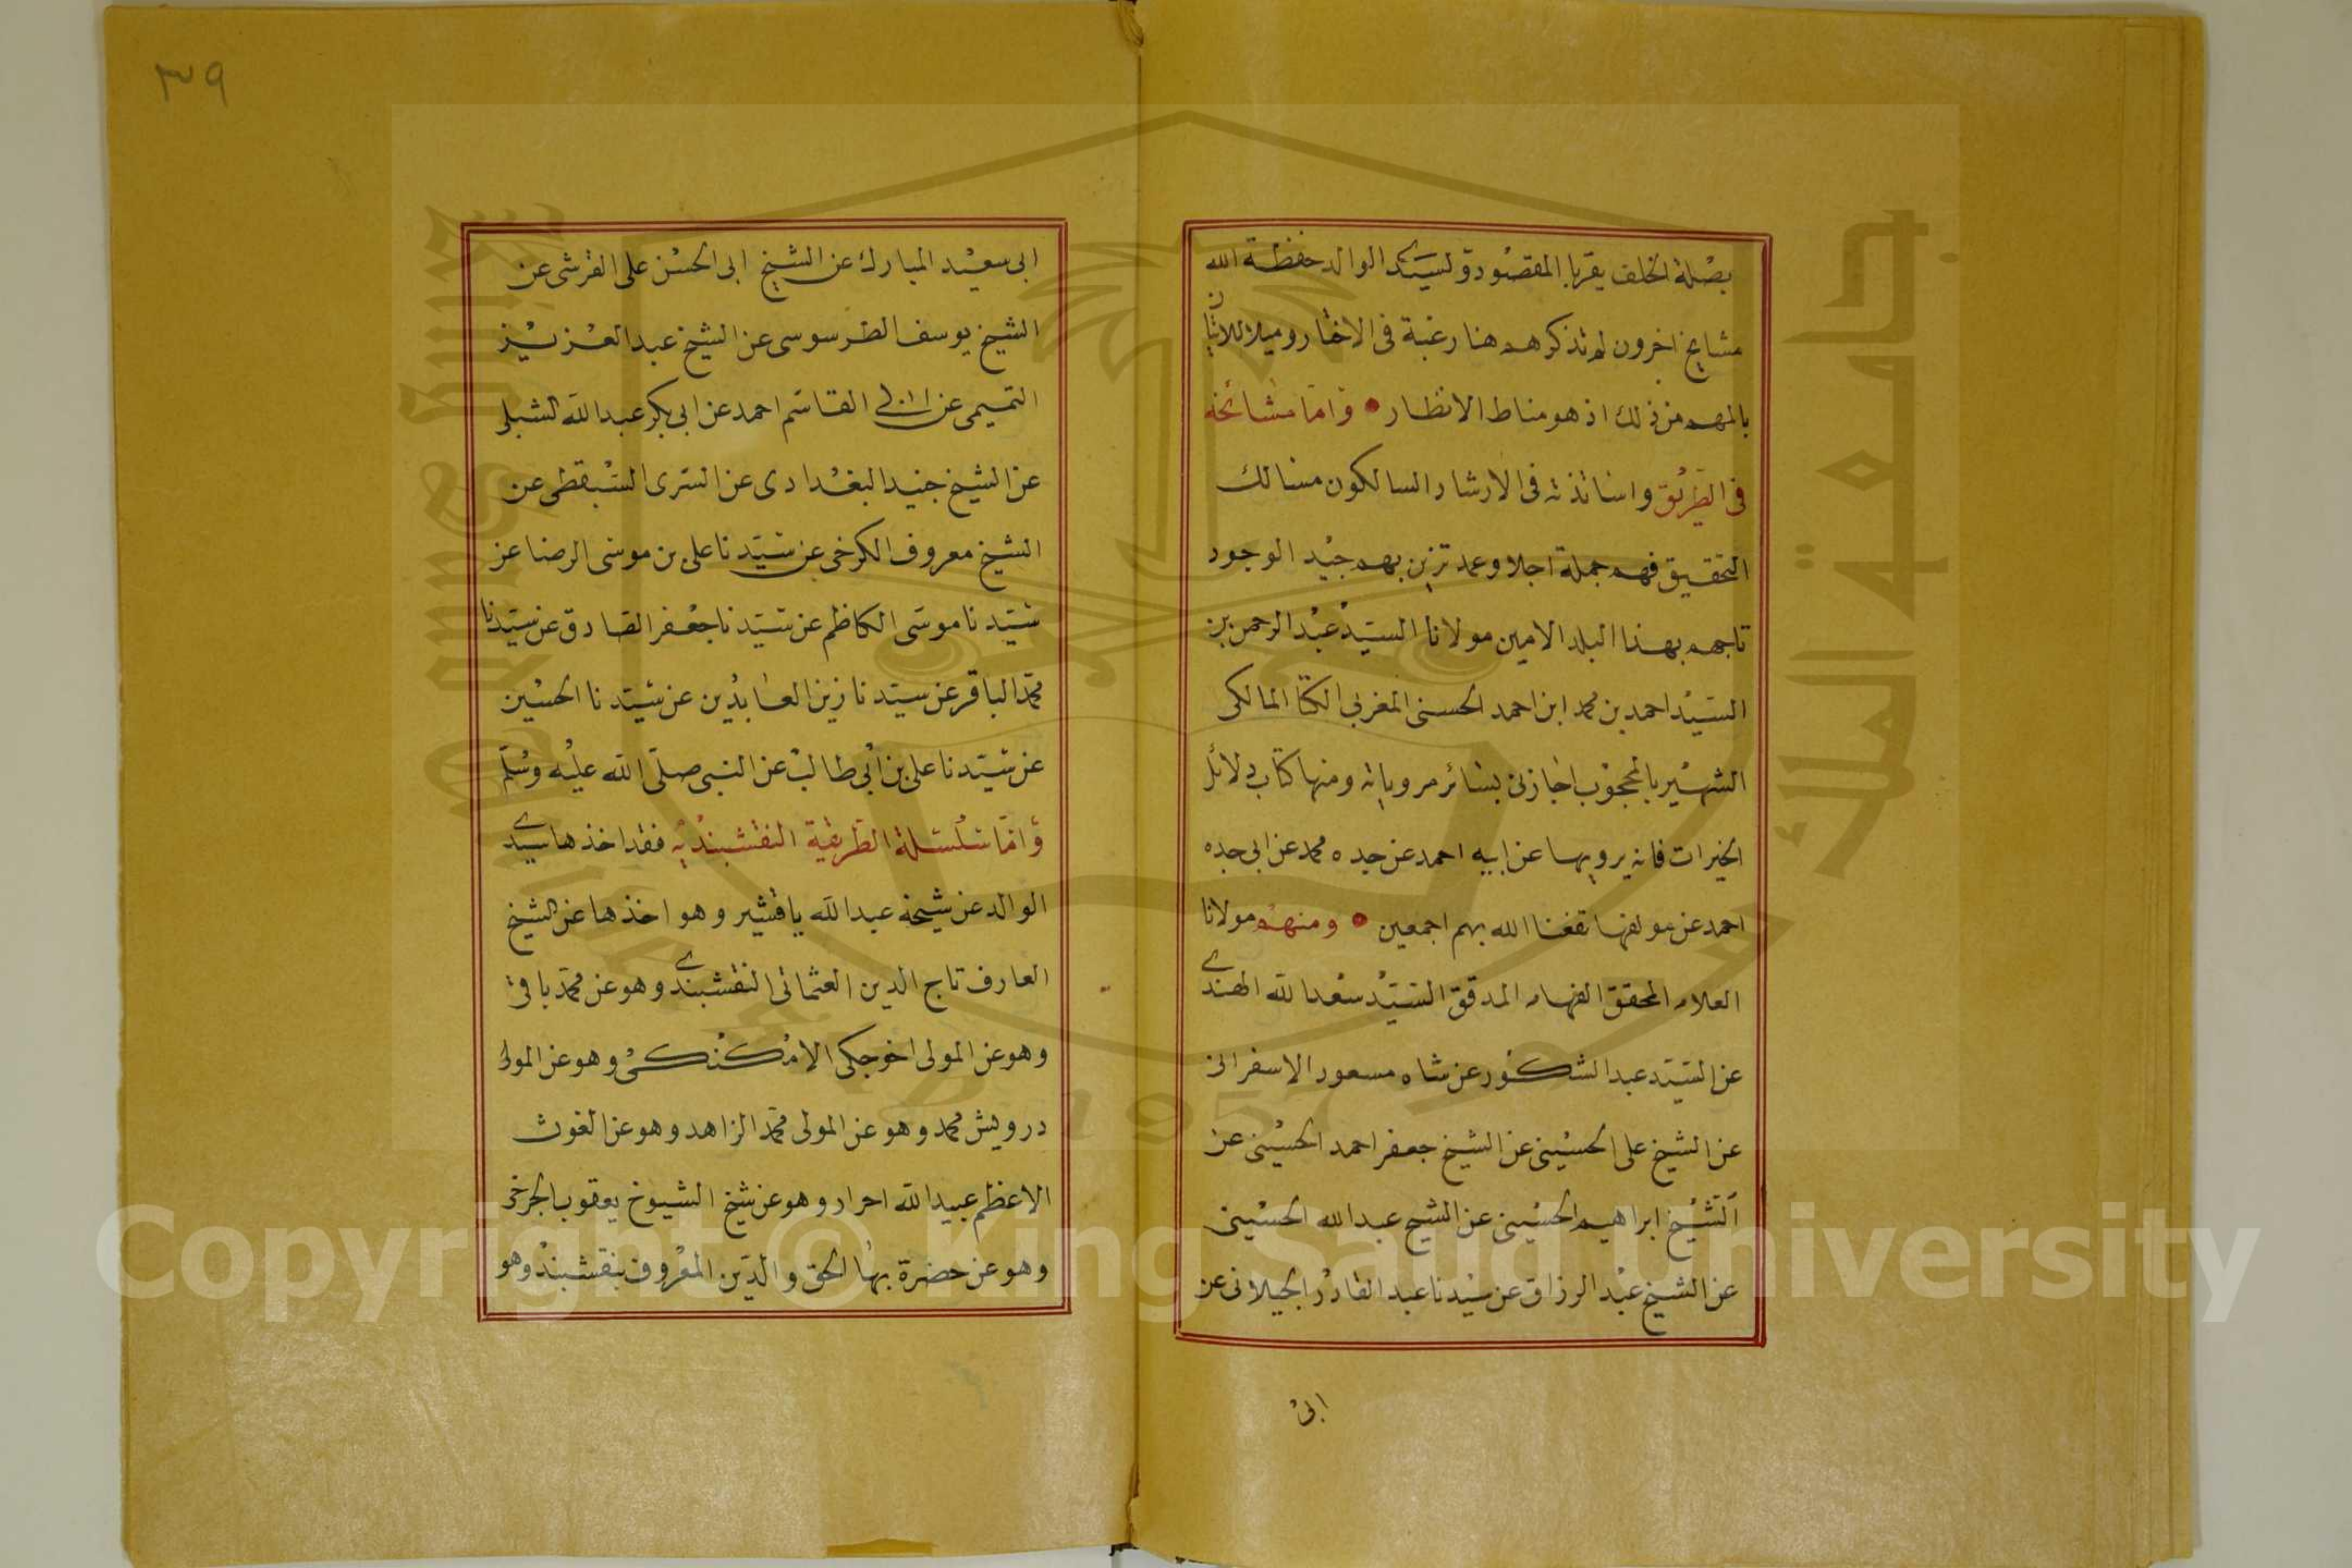 بصلة الخلف يقربا المقصود ولسيدى الوالد حفظة الله
مشايخ اخرون لم نذكرهم هنا رغبة فى الاختار وميلا للاتيان
بالمهم من ذلك اذ هو مناط الانظار • واما مشائخه
فى الطريق واساتذته فى الارشاد السالكون مسالك
التحقيق فهم جملة اجلا وعمد تزين بهم جيد الوجود
تاجهم بهذا البلد الامين مولانا السيد عبد الرحمن بن
السيد احمد بن محمد ابن احمد الحسنى المغربى المالكى
الشهير بالمحجوب اجازنى بسائر مروياته ومنها كتاب دلائل
الخيرات فانه يرويها عن ابيه احمد عن جده محمد عن ابى جده
احمد عن مولفها نفعنا الله بهم اجمعين • ومنهم مولانا
العلامه المحقق الفهامه المدقق السيد سعد الله الهندى
عن السيد عبد الشكور عن شاه مسعود الاسفرانى
عن الشيخ على الحسينى عن الشيخ جعفر احمد الحسينى عن
الشيخ ابراهيم الحسينى عن الشيخ عبد الله الحسينى
عن الشيخ عبد الرزاق عن سيدنا عبد القادر الجيلانى عن
ابى
٣٩
ابى سعيد المبارك عن الشيخ ابى الحسن على القرشى عن
الشيخ يوسف الطرسوسى عن الشيخ عبد العزيز
التميمى عن ابى القاسم احمد عن ابى بكر عبد الله الشبلى
عن الشيخ جنيد البغدادى عن السرى السقطى عن
الشيخ معروف الكرخى عن سيدنا على بن موسى الرضا عن
سيدنا موسى الكاظم عن سيدنا جعفر الصادق عن سيدنا
محمد الباقر عن سيدنا زين العابدين عن سيدنا الحسين
عن سيدنا على بن ابى طالب عن النبى صلى الله عليه وسلم
واما سلسلة الطريقة النقشبنديه فقد اخذها سيدى
الوالد عن شيخه عبد الله باقشير وهو اخذها عن الشيخ
العارف تاج الدين العثمانى النقشبندى وهو عن محمد باقى
وهو عن المولى اخوجكى الامكنكى وهو عن المولى
درويش محمد وهو عن المولى محمد الزاهد وهو عن الغوث
الاعظم عبيد الله احرار وهو عن شيخ الشيوخ يعقوب الجرخى
وهو عن حضرة بها الحق والدين المعروف بنقشبند وهو
جامعة الملك سعود
King Saud University
1957
Copyright © King Saud University